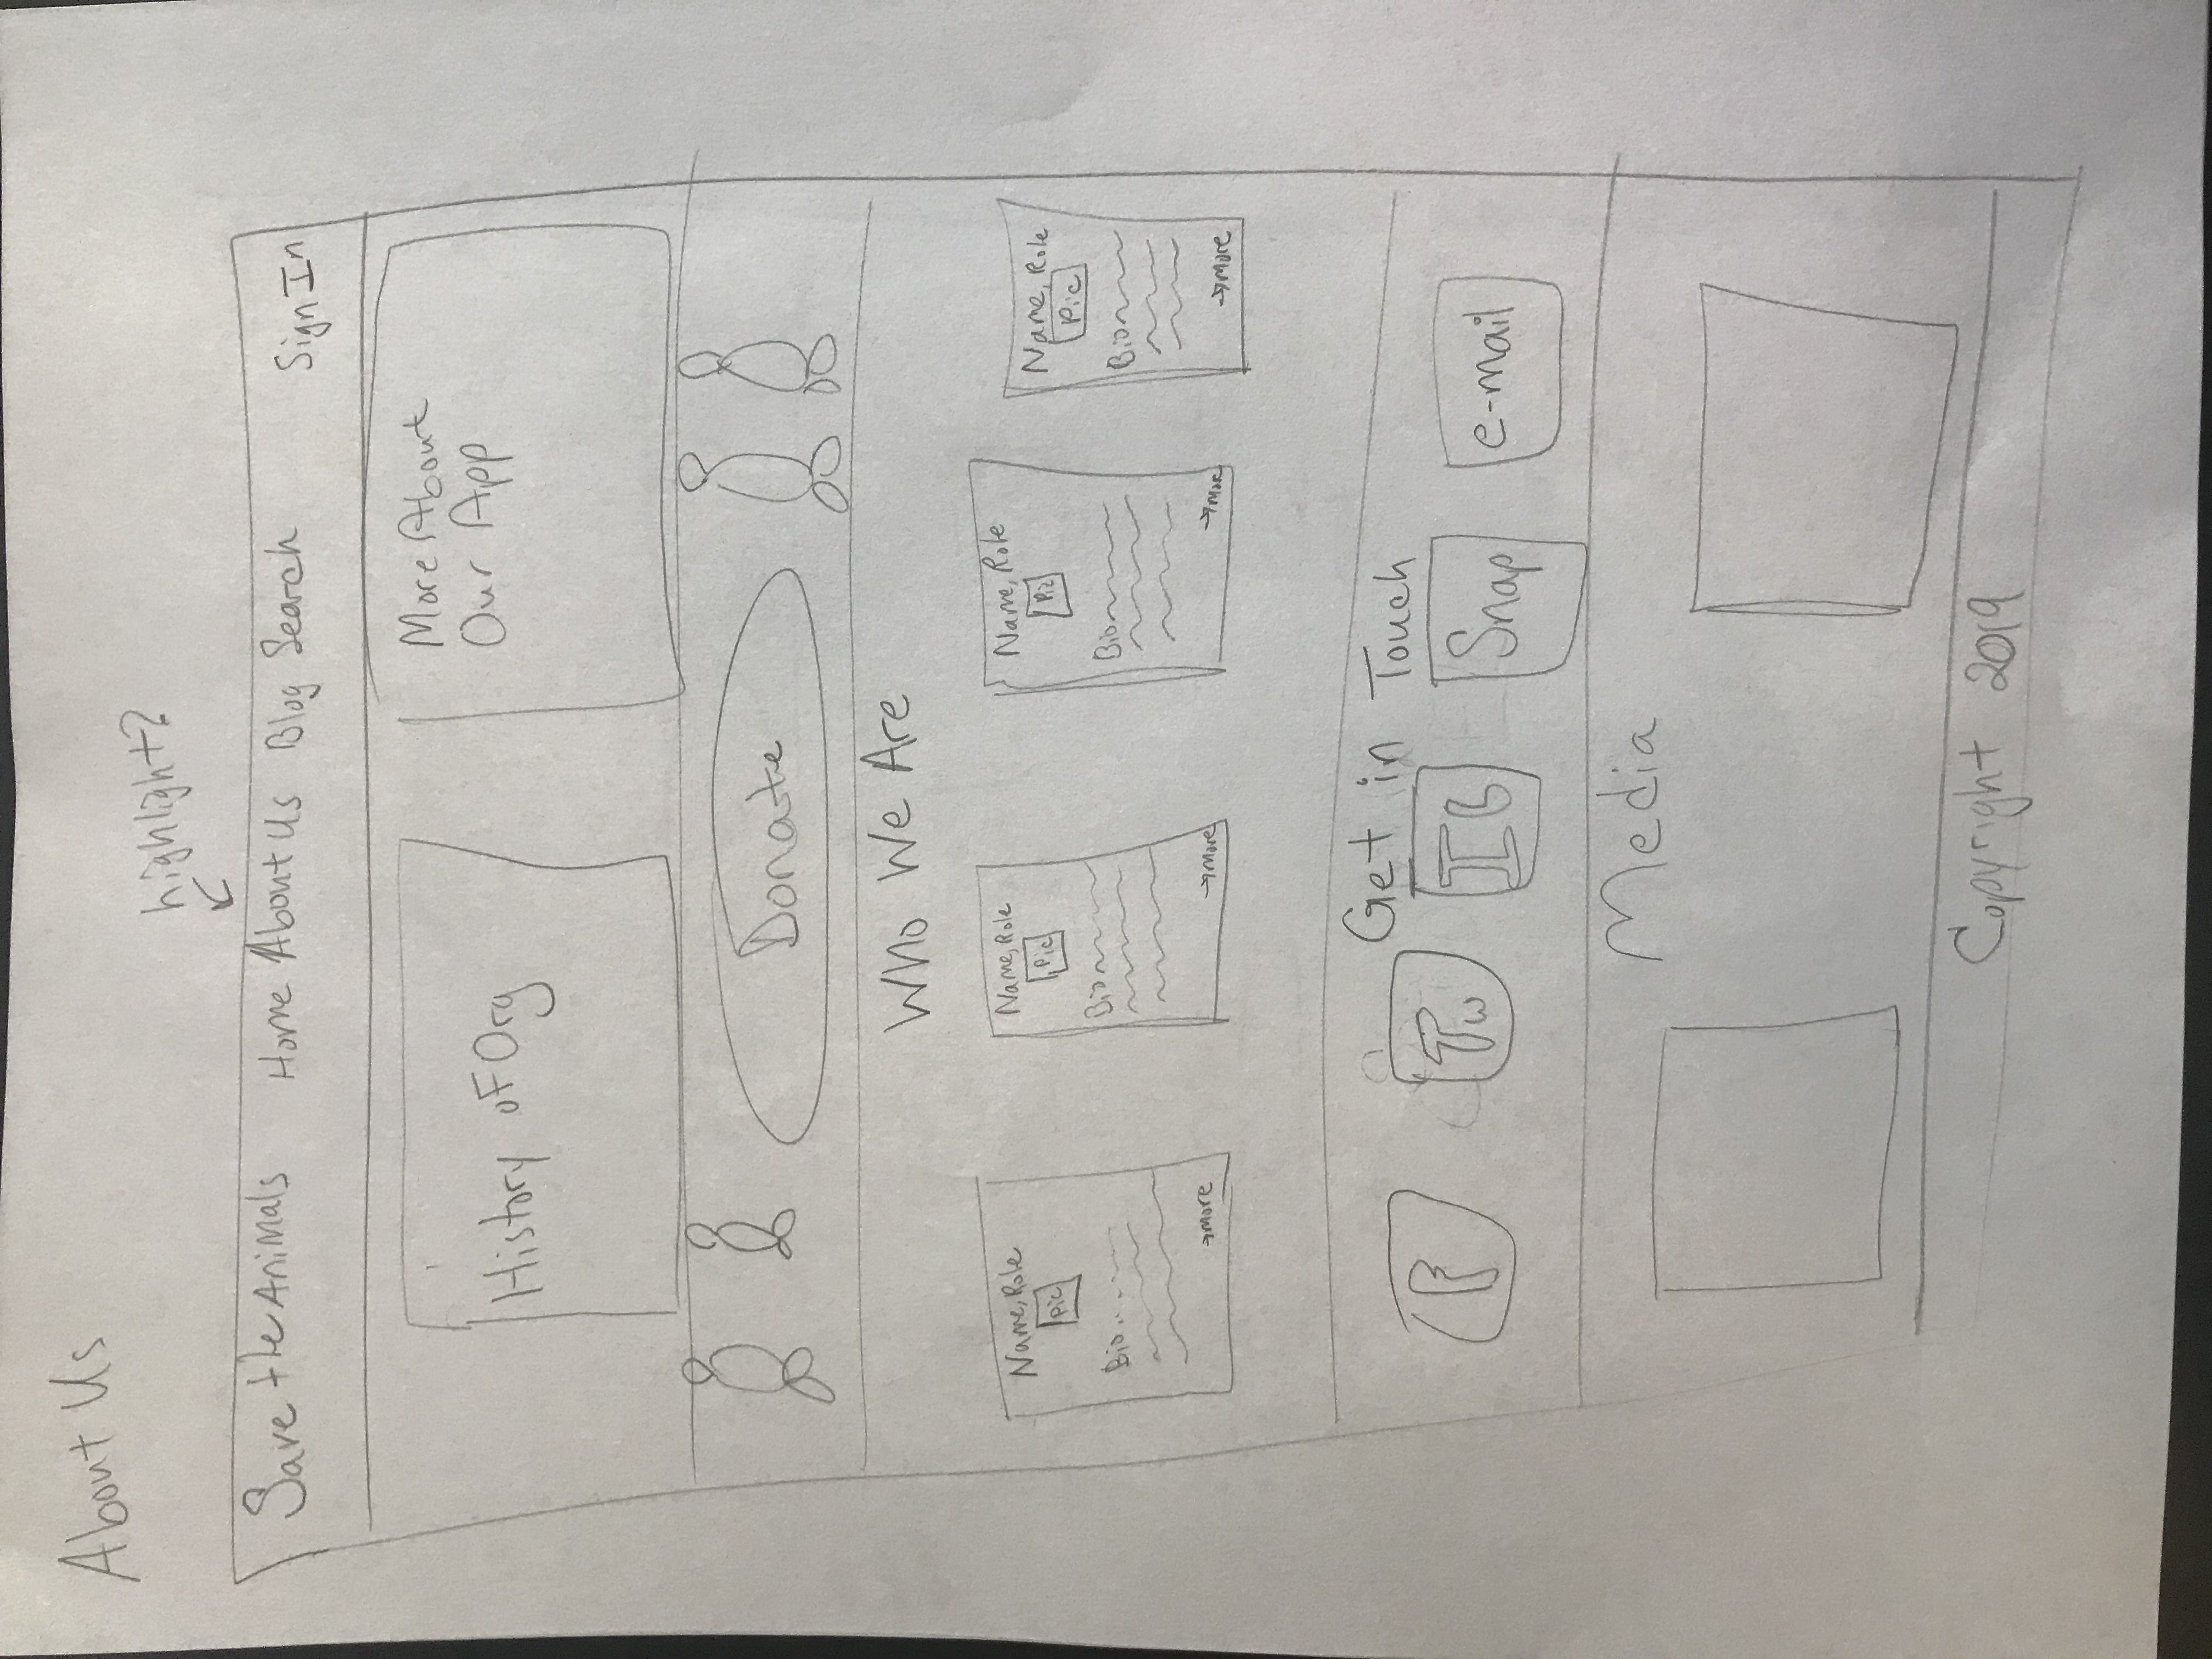 About Us
highlight?
Save the Animals Home About Us Blog Search Sign In
History of Org
More About
Our App
Donate
Who We Are
Name, Role
Pic
Bio
→more
Name, Role
Pic
Bio
→more
Name, Role
Pic
Bio
→more
Name, Role
Pic
Bio
→more
Get in Touch
F
Tw
IG
Snap
e-mail
Media
Copyright 2019